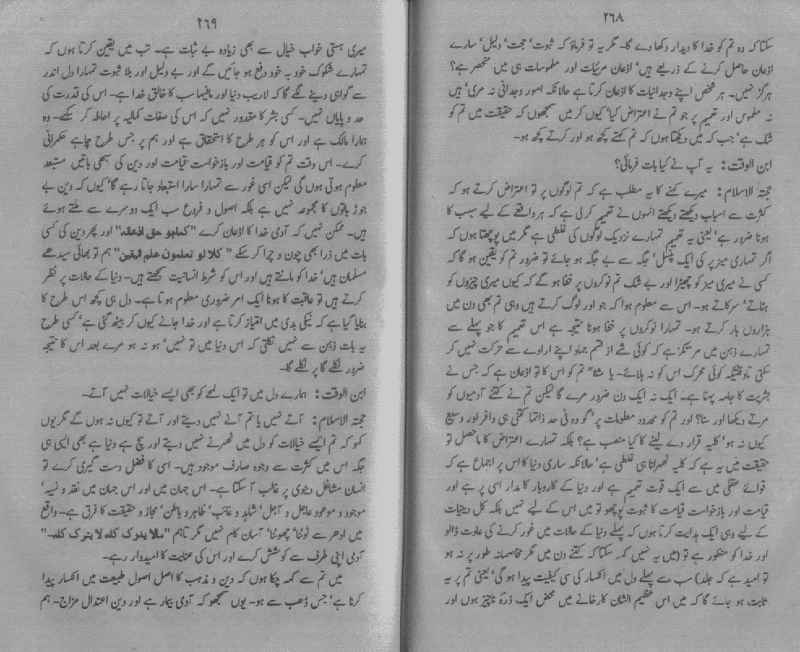 ۲۶۸
سکتا کہ وہ تم کو خدا کا دیدار دکھا دے گا۔ مگر یہ تو فرماؤ کہ ثبوت‘ حجت‘ دلیل‘ سارے
اذعان حاصل کرنے کے ذریعے ہیں‘ اذعان مرئیات اور ملموسات ہی میں منحصر ہے؟
ہرگز نہیں۔ ہر شخص اپنے وجدانیات کا اذعان کرتا ہے حالانکہ امور وجدانی نہ مرئی‘ ہیں
نہ ملموس اور تعمیم پر جو تم نے اعتراض کیا‘ کیوں کر میں سمجھوں کہ حقیقت میں تم کو
شک ہے‘ جب کہ میں دیکھتا ہوں کہ تم کہتے کچھ ہو اور کرتے کچھ ہو۔
ابن الوقت: یہ آپ نے کیا بات فرمائی؟
حجتہ الاسلام: میرے کہنے کا یہ مطلب ہے کہ تم لوگوں پر تو اعتراض کرتے ہو کہ
کثرت سے اسباب دیکھتے دیکھتے انہوں نے تعمیم کر لی ہے کہ ہر واقعے کے لیے سبب کا
ہونا ضرور ہے‘ یعنی یہ تعمیم تمہارے نزدیک لوگوں کی غلطی ہے مگر میں پوچھتا ہوں کہ
اگر تمہاری میز پر کی ایک پنسل‘ جگہ سے بے جگہ ہو جائے تو ضرور تم کو یقین ہو گا کہ
کسی نے میری میز کو چھیڑا اور بے شک تم نوکروں پر خفا ہو گے کہ کیوں میری چیزوں کو
ہٹاتے‘ سرکاتے ہو۔ اس سے معلوم ہوا کہ جو اور لوگ کرتے ہیں وہی تم بھی دن میں
ہزاروں بار کرتے ہو۔ تمہارا نوکروں پر خفا ہونا نتیجہ ہے اس تعمیم کا جو پہلے سے
تمہارے ذہن میں مرتکز ہے کہ کوئی شے از قسم جماد اپنے ارادے سے حرکت نہیں کر
سکتی تاوقتیکہ کوئی محرک اس کو نہ ہلائے۔ یا مثلا” تم کو اس کا تو اذعان ہے کہ جس نے
بشریت کا جامہ پہنا ہے۔ ایک نہ ایک دن ضرور مرے گا لیکن تم نے کتنے آدمیوں کو
مرتے دیکھا اور سنا؟ اور تم کو محدود معلومات پر‘ گو وہ فی حد ذاتہا کتنی ہی وافر اور وسیع
کیوں نہ ہو‘ کلیہ قرار دے لینے کا کیا منصب ہے؟ بلکہ تمہارے اعتراض کا ماحصل تو
حقیقت میں یہ ہے کہ کلیہ ٹھہرانا ہی غلطی ہے‘ حالانکہ ساری دنیا کا اس پر اجماع ہے کہ
قوائے عقلی میں سے ایک قوت تعمیم ہے اور دنیا کے کاروبار کا مدار اسی پر ہے اور
قیامت اور بازخواست قیامت کا ثبوت پوچھو تو میں اس کے لیے نہیں بلکہ کل دینیات
کے لیے وہی ایک ہدایت کرتا ہوں کہ پہلے دنیا کے حالات میں غور کرنے کی عادت ڈالو
اور خدا کو منظور ہے تو (میں یہ نہیں کہہ سکتا کہ کتنے دن میں مگر مخاصمانہ طور پر نہ ہو
تو امید ہے کہ جلد) سب سے پہلے دل میں انکسار کی سی کیفیت پیدا ہو گی‘ یعنی تم پر یہ
ثابت ہو جائے گا کہ میں اس عظیم الشان کارخانے میں محض ایک ذرۂ ناچیز ہوں اور
۲۶۹
میری ہستی خواب خیال سے بھی زیادہ بے ثبات ہے۔ تب میں یقین کرتا ہوں کہ
تمہارے شکوک خود بہ خود دفع ہو جائیں گے اور بے دلیل اور بلا ثبوت تمہارا دل اندر
سے گواہی دینے لگے گا کہ لاریب دنیا اور مافیہا سب کا خالق خدا ہے۔ اس کی قدرت کی
حد و پایاں نہیں۔ کسی بشر کا مقدور نہیں کہ اس کی صفات کمالیہ پر احاطہ کر سکے۔ وہ
ہمارا مالک ہے اور اس کو ہر طرح کا استحقاق ہے اور ہم پر جس طرح چاہے حکمرانی
کرے۔ اس وقت تم کو قیامت اور بازخواست قیامت اور دین کی سبھی باتیں مستبعد
معلوم ہوتی ہوں گی لیکن اسی غور سے تمہارا سارا استبعاد جاتا رہے گا‘ کیوں کہ دین بے
جوڑ باتوں کا مجموعہ نہیں ہے بلکہ اصول و فروع سب ایک دوسرے سے ملتے ہوئے
ہیں۔ ممکن نہیں کہ آدمی خدا کا اذعان کرے ”کماہو حق اذعانہ“ اور پھر دین کی کسی
بات میں ذرا بھی چون و چرا کر سکے ”کلا لو تعلمون علم الیقین“ ہم تو بھائی سیدھے
مسلمان ہیں‘ خدا کو مانتے ہیں اور اس کو شرط انسانیت سمجھتے ہیں۔ دنیا کے حالات پر نظر
کرتے ہیں تو عاقبت کا ہونا ایک امر ضروری معلوم ہوتا ہے۔ دل ہی کچھ اس طرح کا
بنایا گیا ہے کہ نیکی بدی میں امتیاز کرتا ہے اور خدا جانے کیوں کر بیٹھ گئی ہے‘ کسی طرح
سے یہ بات ذہن سے نہیں نکلتی کہ اس دنیا میں تو نہیں‘ ہو نہ ہو مرے بعد اس کا نتیجہ
ضرور نکلے گا پر نکلے گا۔
ابن الوقت: ہمارے دل میں تو ایک لمحے کو بھی ایسے خیالات نہیں آتے۔
حجتہ الاسلام: آتے نہیں یا تم آنے نہیں دیتے اور آتے تو کیوں نہ ہوں گے مگر یوں
کہو کہ تم ایسے خیالات کو دل میں ٹھہرنے نہیں دیتے اور سچ ہے دنیا ہے بھی ایسی ہی
جگہ اس میں کثرت سے وجوہ صارف موجود ہیں۔ اسی کا فضل دست گیری کرے تو
انسان مشاغل دنیوی پر غالب آ سکتا ہے۔ اس جہان میں اور اس جہان میں نقد و نسیہ‘
موجود و موعود عاجل و آجل‘ شاہد و غائب‘ ظاہر و باطن‘ مجاز و حقیقت کا فرق ہے۔ واقع
میں ادھر سے ٹوٹنا‘ چھوٹنا‘ آسان کام نہیں مگر تاہم ”مالا یدرک کلہ لا یترک کلہ۔“
آدمی اپنی طرف سے کوشش کرے اور اس کی عنایت کا امیدوار رہے۔
میں تم سے کہہ چکا ہوں کہ دین و مذہب کا اصل اصول طبیعت میں انکسار پیدا
کرنا ہے‘ جس ڈھب سے ہو۔ یوں سمجھو کہ آدمی بیمار ہے اور دین اعتدال مزاج۔ ہم